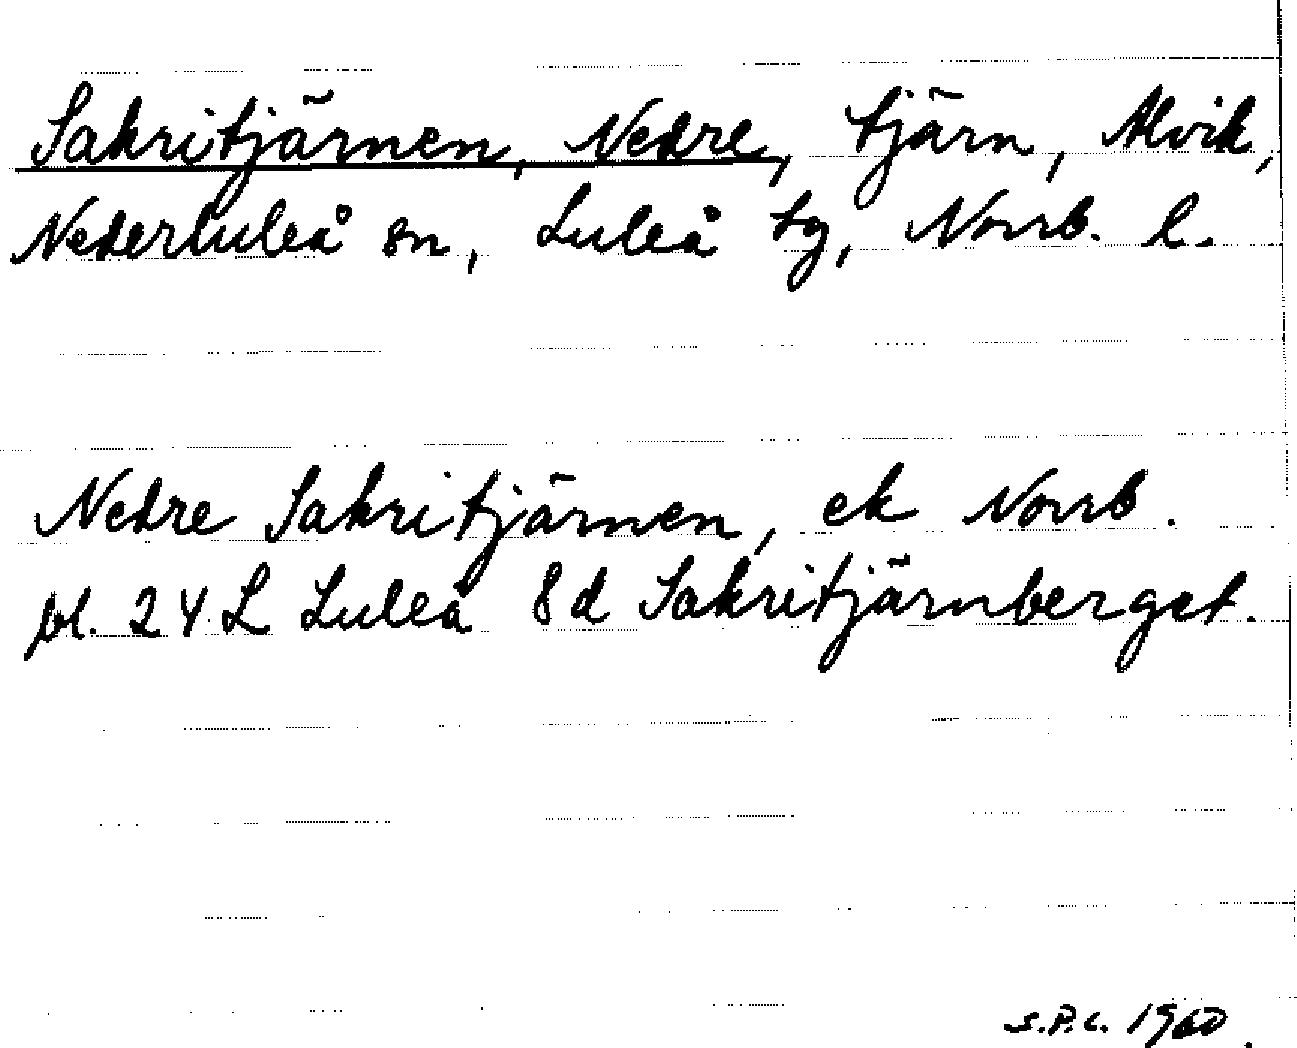 Sakritjärnen, Nedre, tjärn, Alvik,
Nederluleå sn, Luleå tg, Norrb. l.
Nedre Sakritjärnen, ek Norrb.
bl. 24 L Luleå 8d Sakritjärnberget.
S.P.C. 1960.